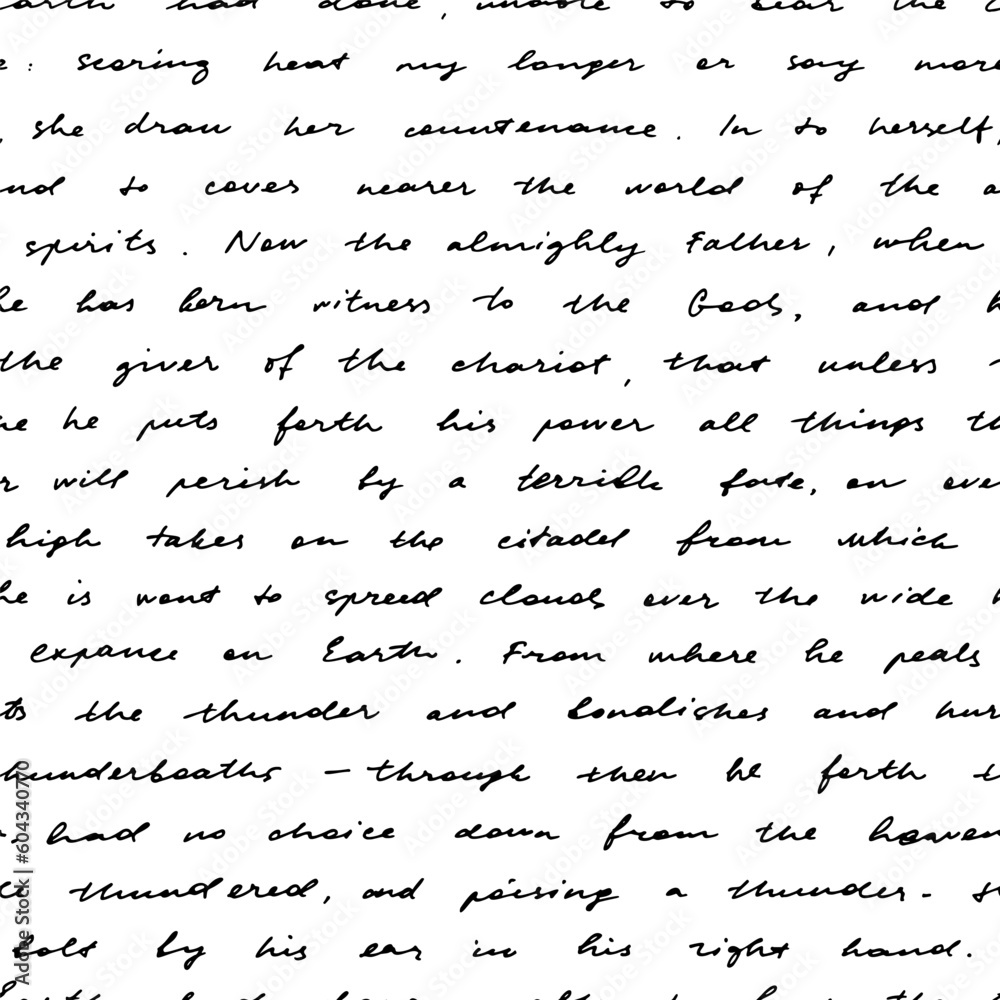 had done, unable to bear the
e: scoring heat my longer or say more
, she draw her countenance. In to herself,
and to coves nearer the world of the a
spirits. Now the almighly Father, when
he has born witness to the Gods, and h
the giver of the chariot, that unless
he he puts forth his power all things th
r will perish by a terrible fate, on eve
high takes on the citadel from which
he is wont to spreed clouds over the wide
expance on Earth. From where he peals
ts the thunder and bondishes and hur
hunderboaths – through then he forth t
had no choice down from the heaven
thundered, and poising a thunder-
bolt by his ear in his right hand.
Adobe Stock | #604340770